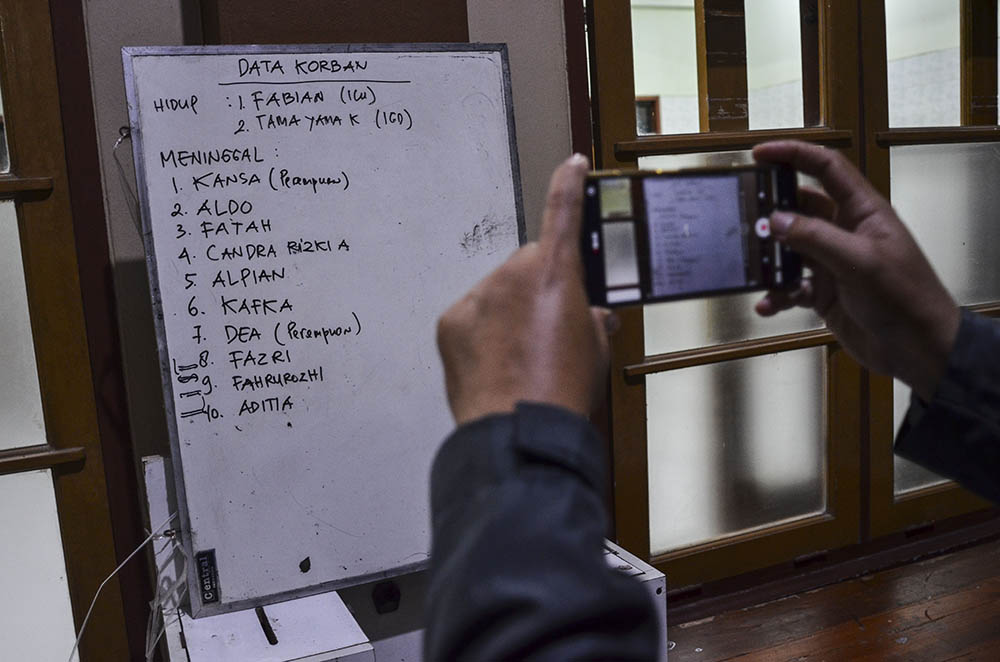 DATA KORBAN
HIDUP : 1. FABIAN (ICU)
2. TAMA YAMA K (IGD)
MENINGGAL :
1. KANSA (Perempuan)
2. ALDO
3. FATAH
4. CANDRA RIZKI A
5. ALPIAN
6. KAFKA
7. DEA (Perempuan)
8. FAZRI
9. FAHRUROZHI
10. ADITIA
Central